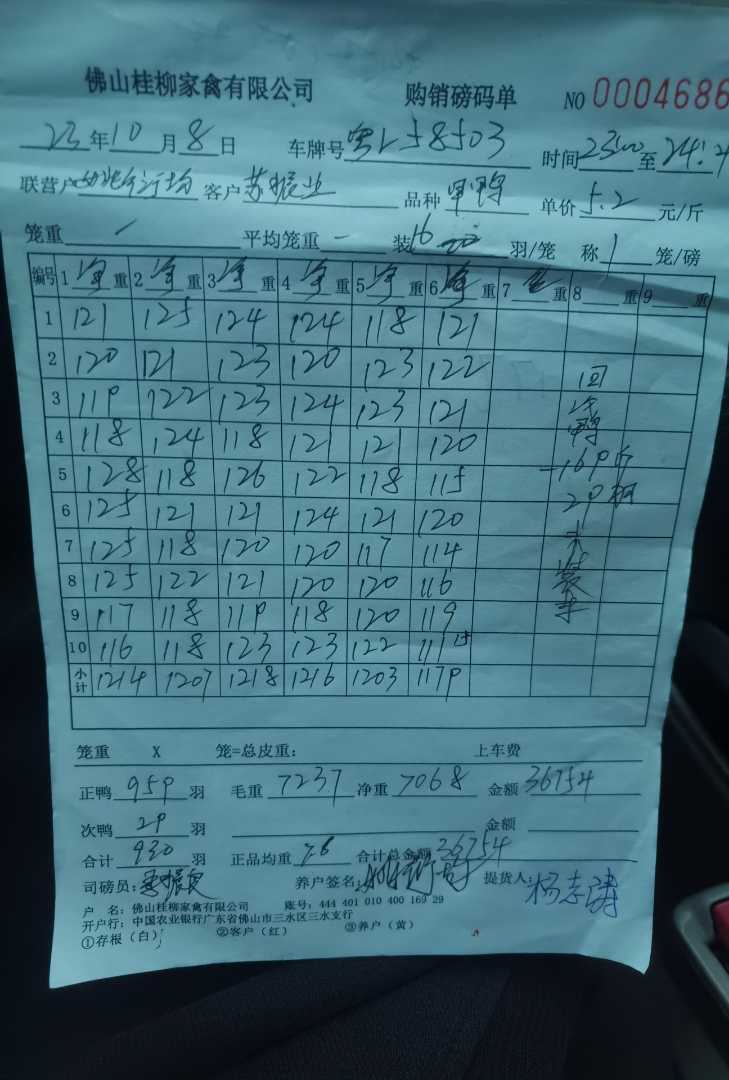 佛山桂柳家禽有限公司 购销磅码单 NO 0004686
23年10月8日 车牌号粤L58503 时间2300至24:
联营户 客户苏振业 品种 鸭 单价5.2元/斤
笼重 / 平均笼重 - 装16 羽/笼 称1笼/磅
编号 1净重 2净重 3净重 4净重 5净重 6净重 7 重 8 重 9 重
1 121 125 124 124 118 121
2 120 121 123 120 123 122 回
3 119 122 123 124 123 121
4 118 124 118 121 121 120 鸭
5 128 118 126 122 118 115 -169斤
6 125 121 121 124 121 120 29
7 125 118 120 120 117 114
8 125 122 121 120 120 116
9 117 118 119 118 120 119 车
10 116 118 123 123 122 111
小计 1214 1207 1218 1216 1203 1179
笼重 X 笼=总皮重: 上车费
正鸭959羽 毛重7237 净重7068 金额36754
次鸭29羽 金额
合计930羽 正品均重7.6 合计总金额36754
司磅员: 养户签名: 提货人:杨志涛
户 名: 佛山桂柳家禽有限公司 账号: 444 401 010 400 169 29
开户行: 中国农业银行广东省佛山市三水区三水支行
①存根(白) ②客户(红) ③养户(黄)